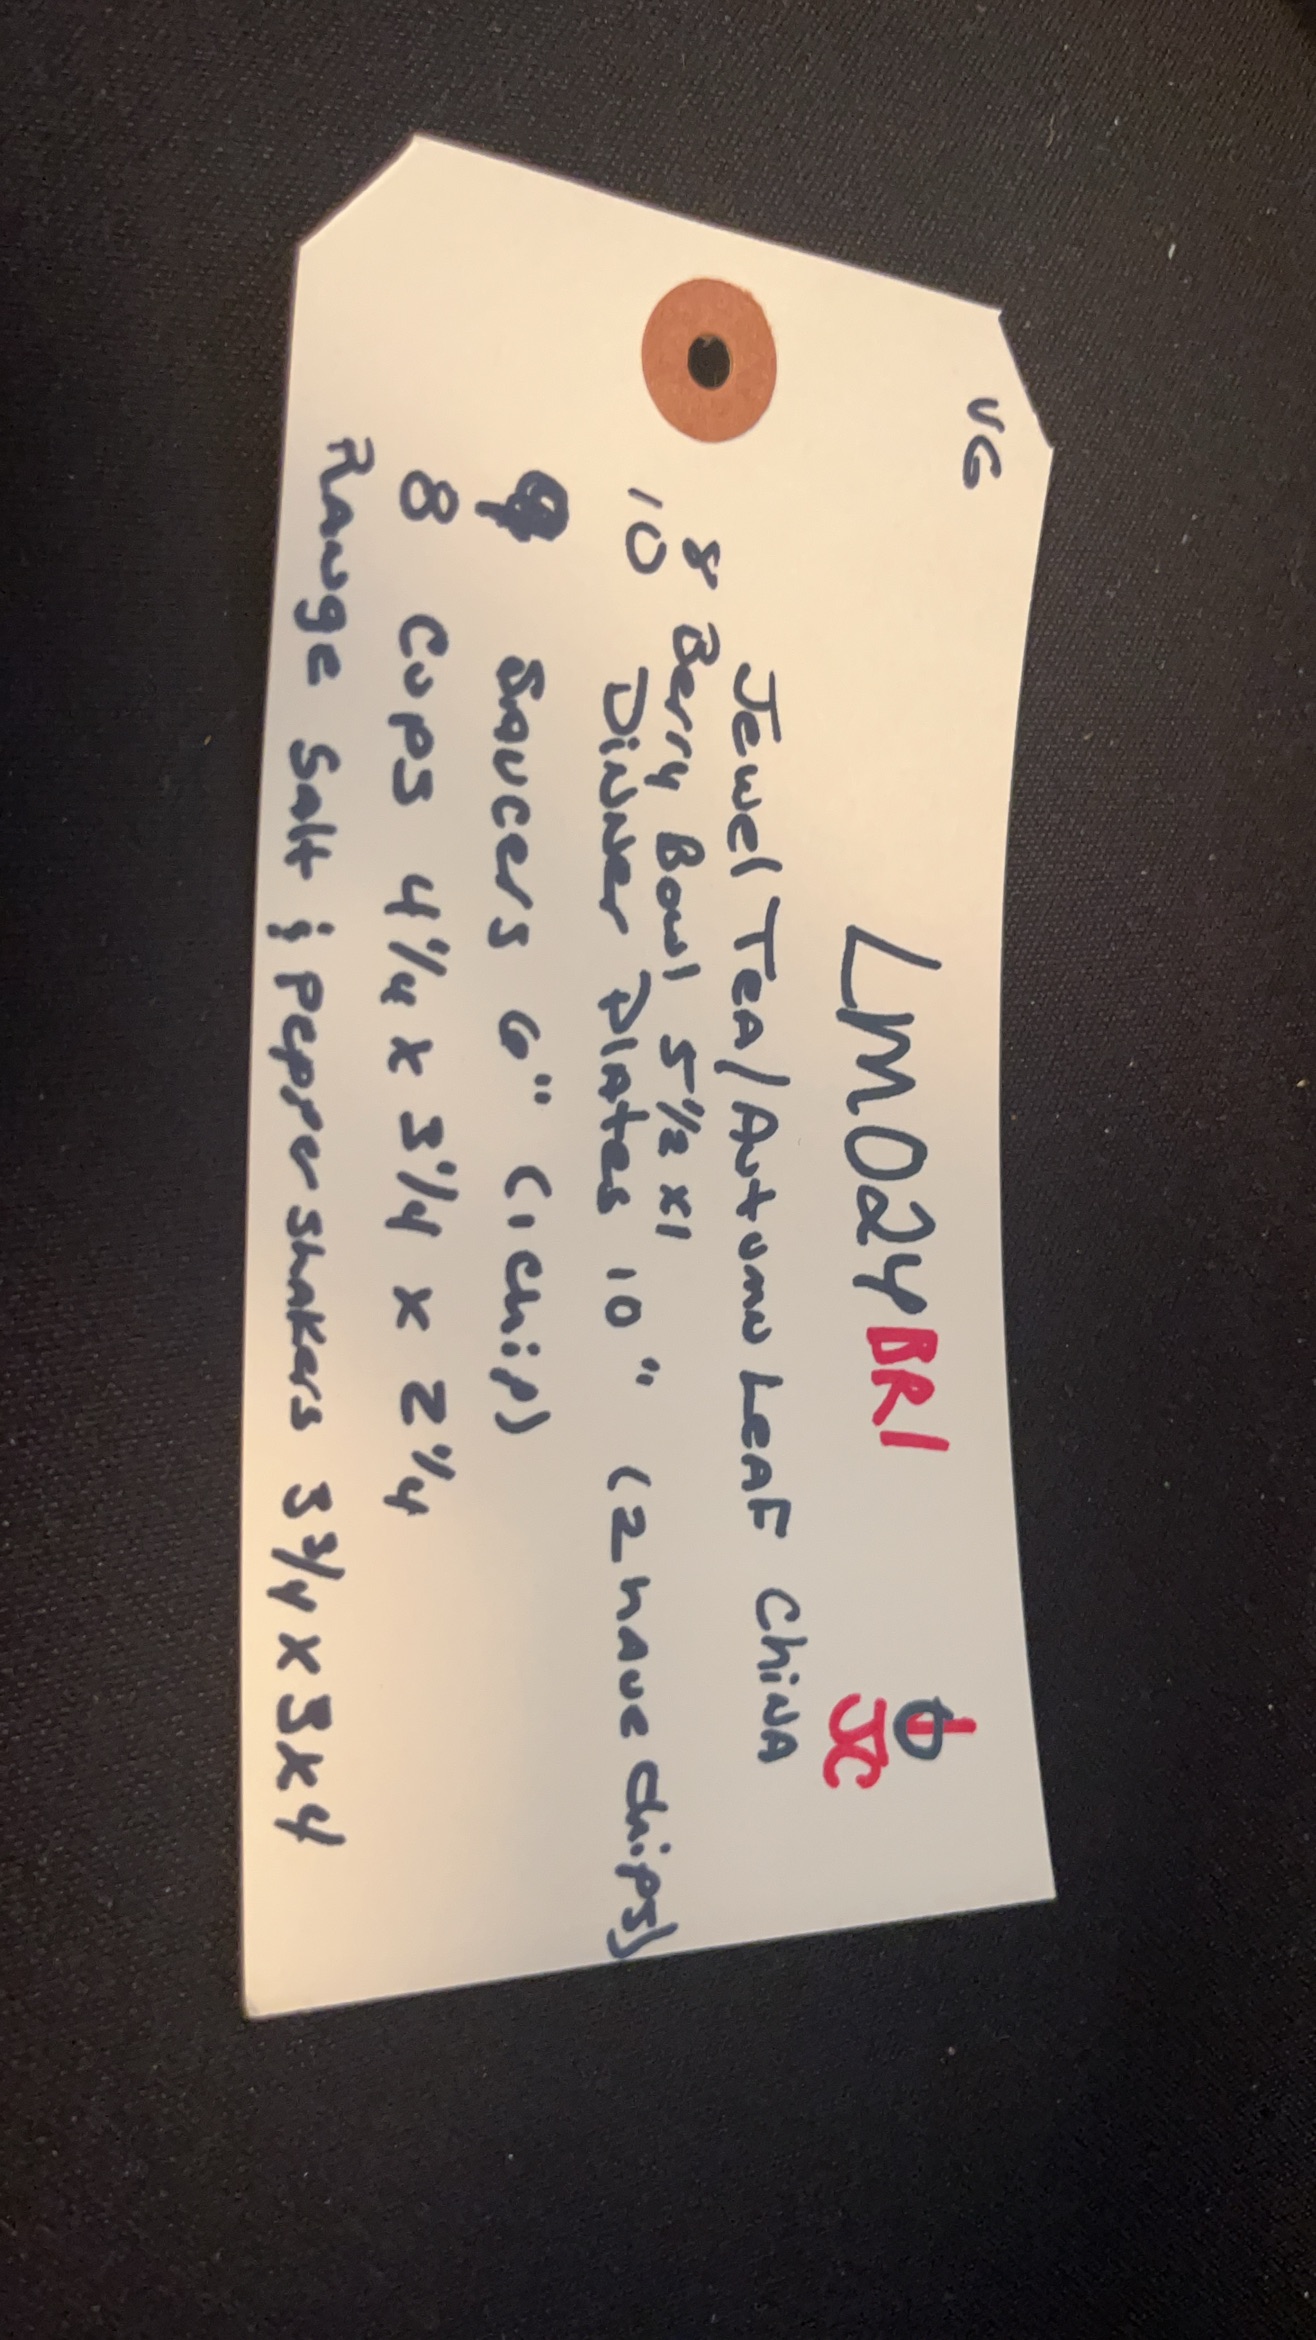 VG
LM024BR1
JC
Jewel Tea/Autumn Leaf China
8 Berry Bowl 5½ x1
10 Dinner Plates 10" (2 have chips)
Saucers 6" (1 chip)
8 Cups 4¼ x 3¼ x 2¼
Range Salt & Pepper shakers 3¾ x 3 x 4